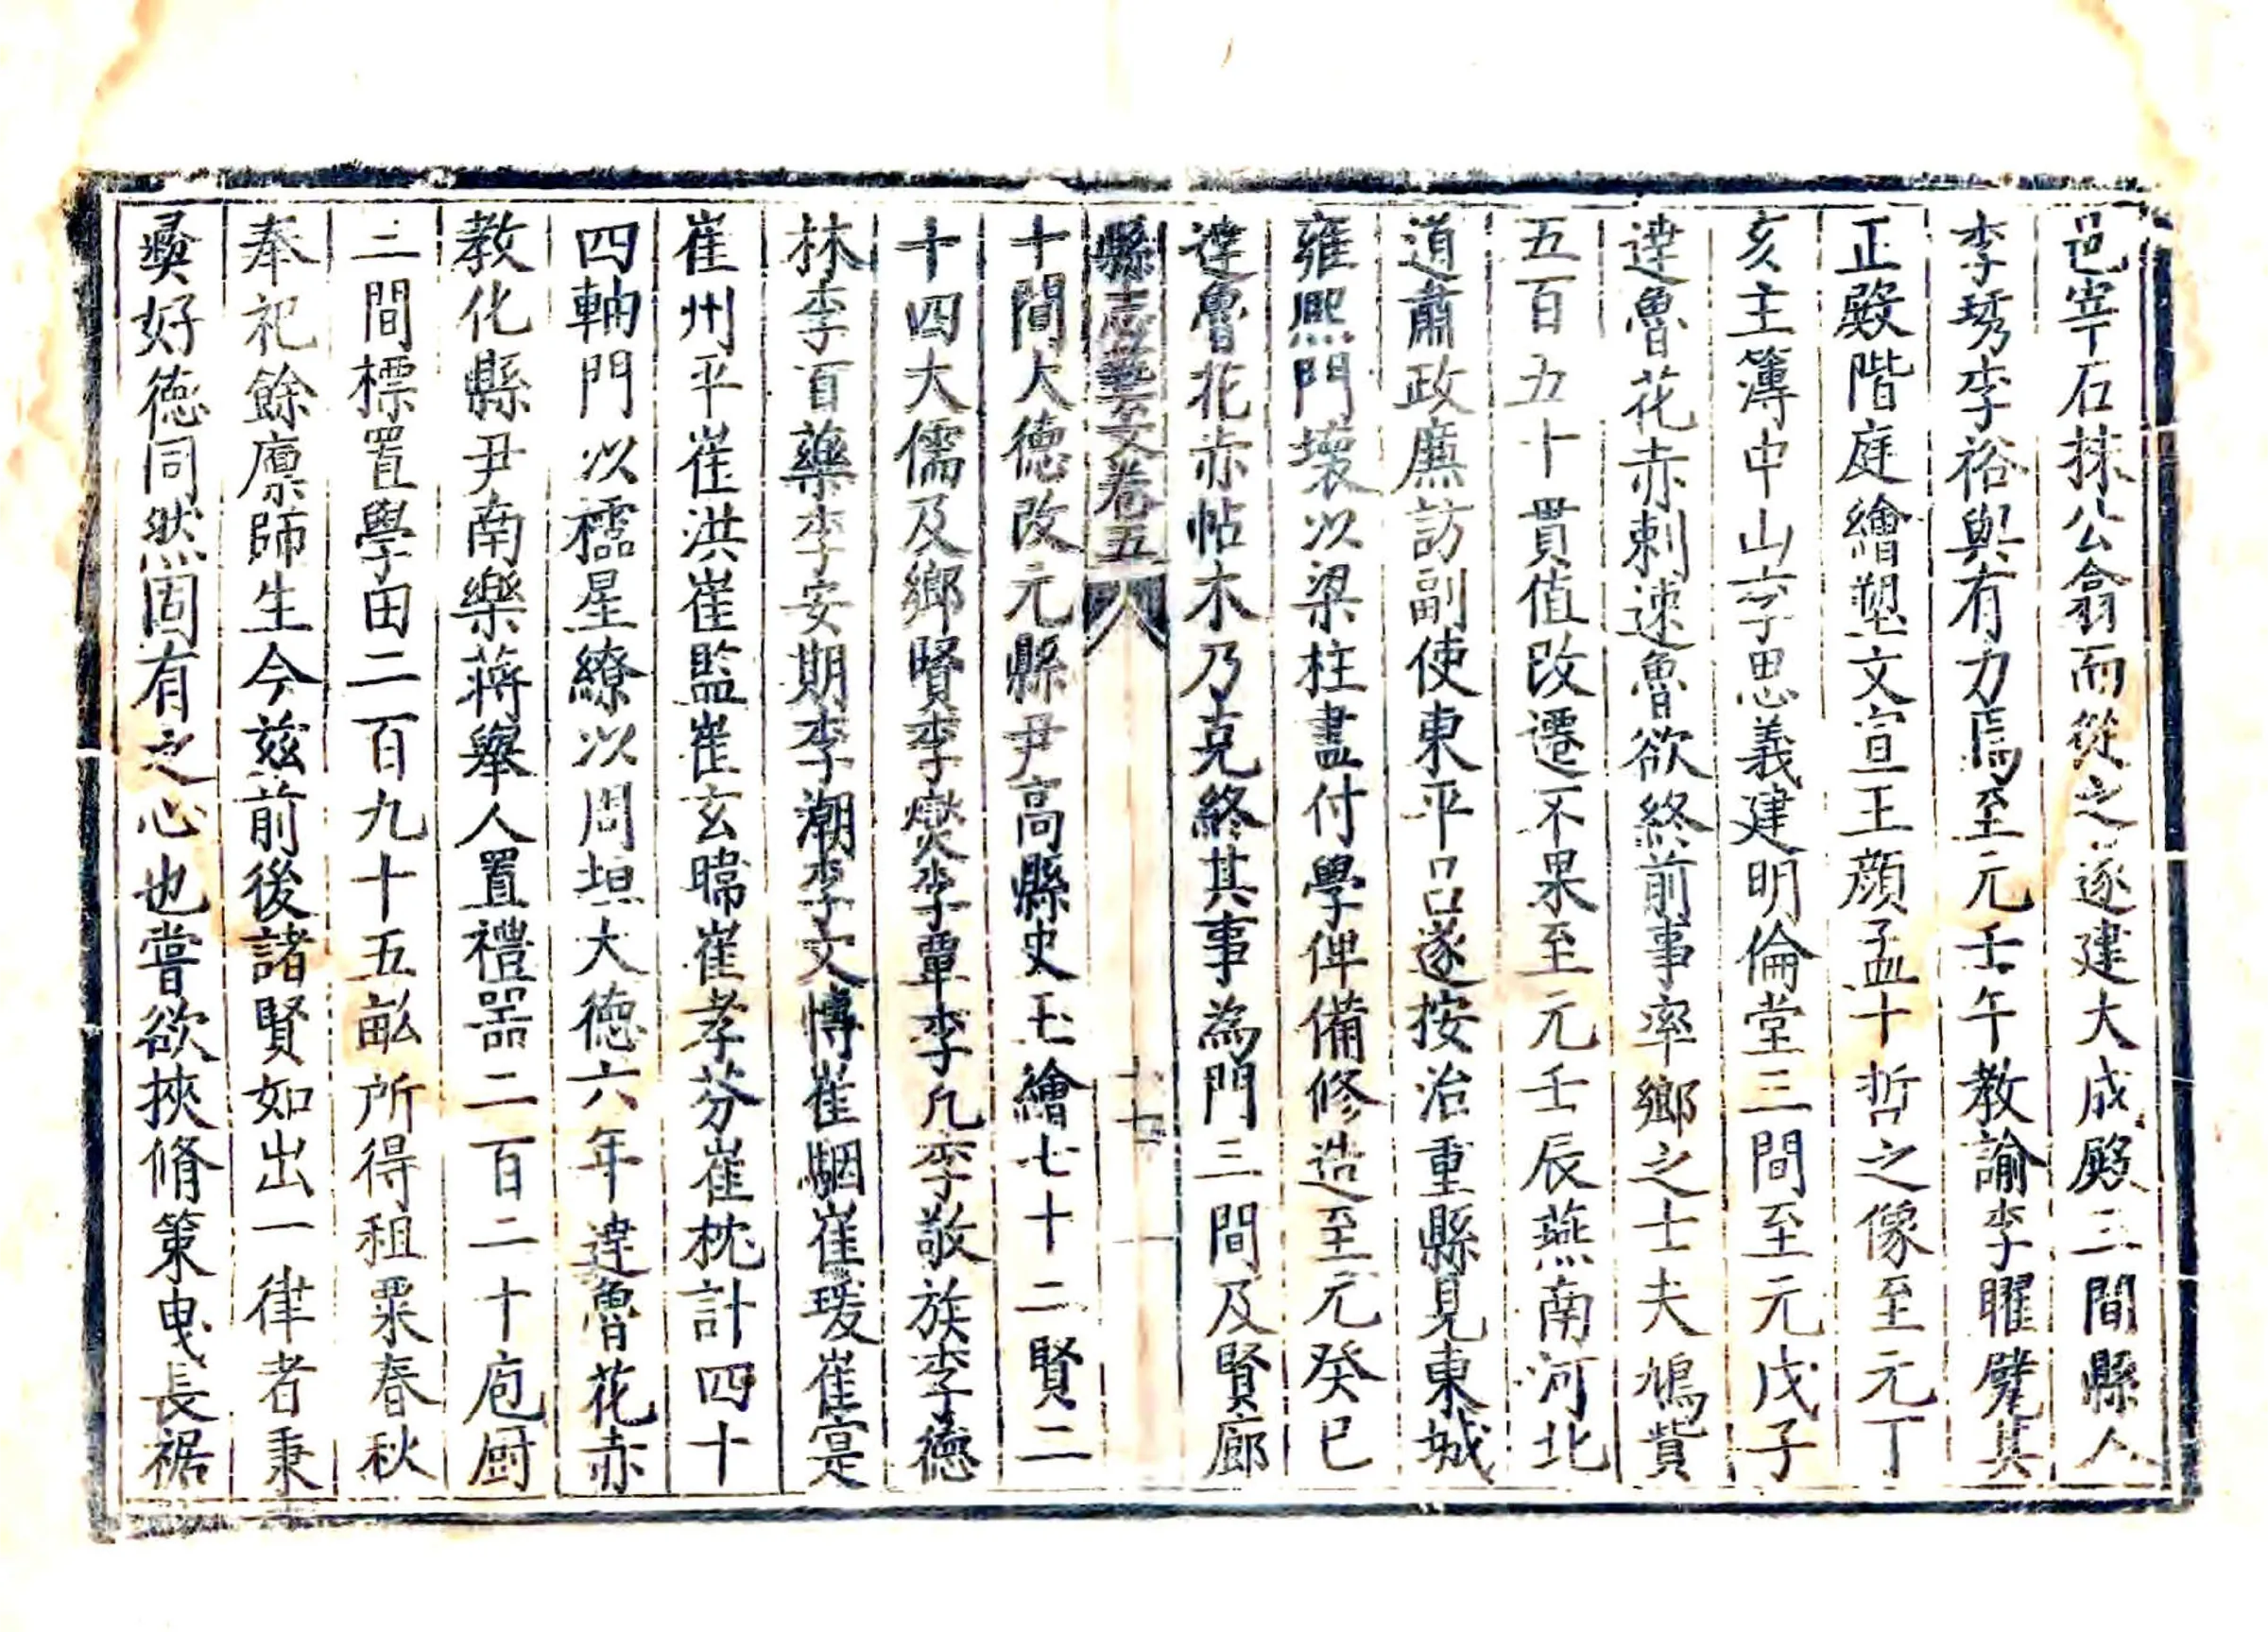 邑宰石抹公翕而從之遂建大成殿三間縣人
李琇李裕與有力焉至元壬午教諭李曜甓其
正殿階庭繪塑文宣王顔孟十哲之像至元丁
亥主簿中山亨思義建明倫堂三間至元戊子
達魯花赤剌速魯欲終前事率鄉之士夫鳩貲
五百五十貫值改遷不果至元壬辰燕南河北
道肅政廉訪副使東平呂遂按治重縣見東城
雍熙門壞以梁柱盡付學俾備修造至元癸巳
達魯花赤帖木乃克終其事為門三間及賢廊
縣志藝文卷五 十七
十間大德改元縣尹高縣史王繪七十二賢二
十四大儒及鄉賢李爕李覃李几李敬族李德
林李百藥李安期李潮李文博崔駰崔瑗崔寔
崔州平崔洪崔監崔玄暐崔孝芬崔枕計四十
四輈門以櫺星繚以周垣大德六年達魯花赤
教化縣尹南樂蔣舉人置禮器二百二十庖厨
三間標置學田二百九十五畝所得租粟春秋
奉祀餘廩師生今兹前後諸賢如出一律者秉
彛好德同然固有之心也嘗欲挾脩策曳長裾